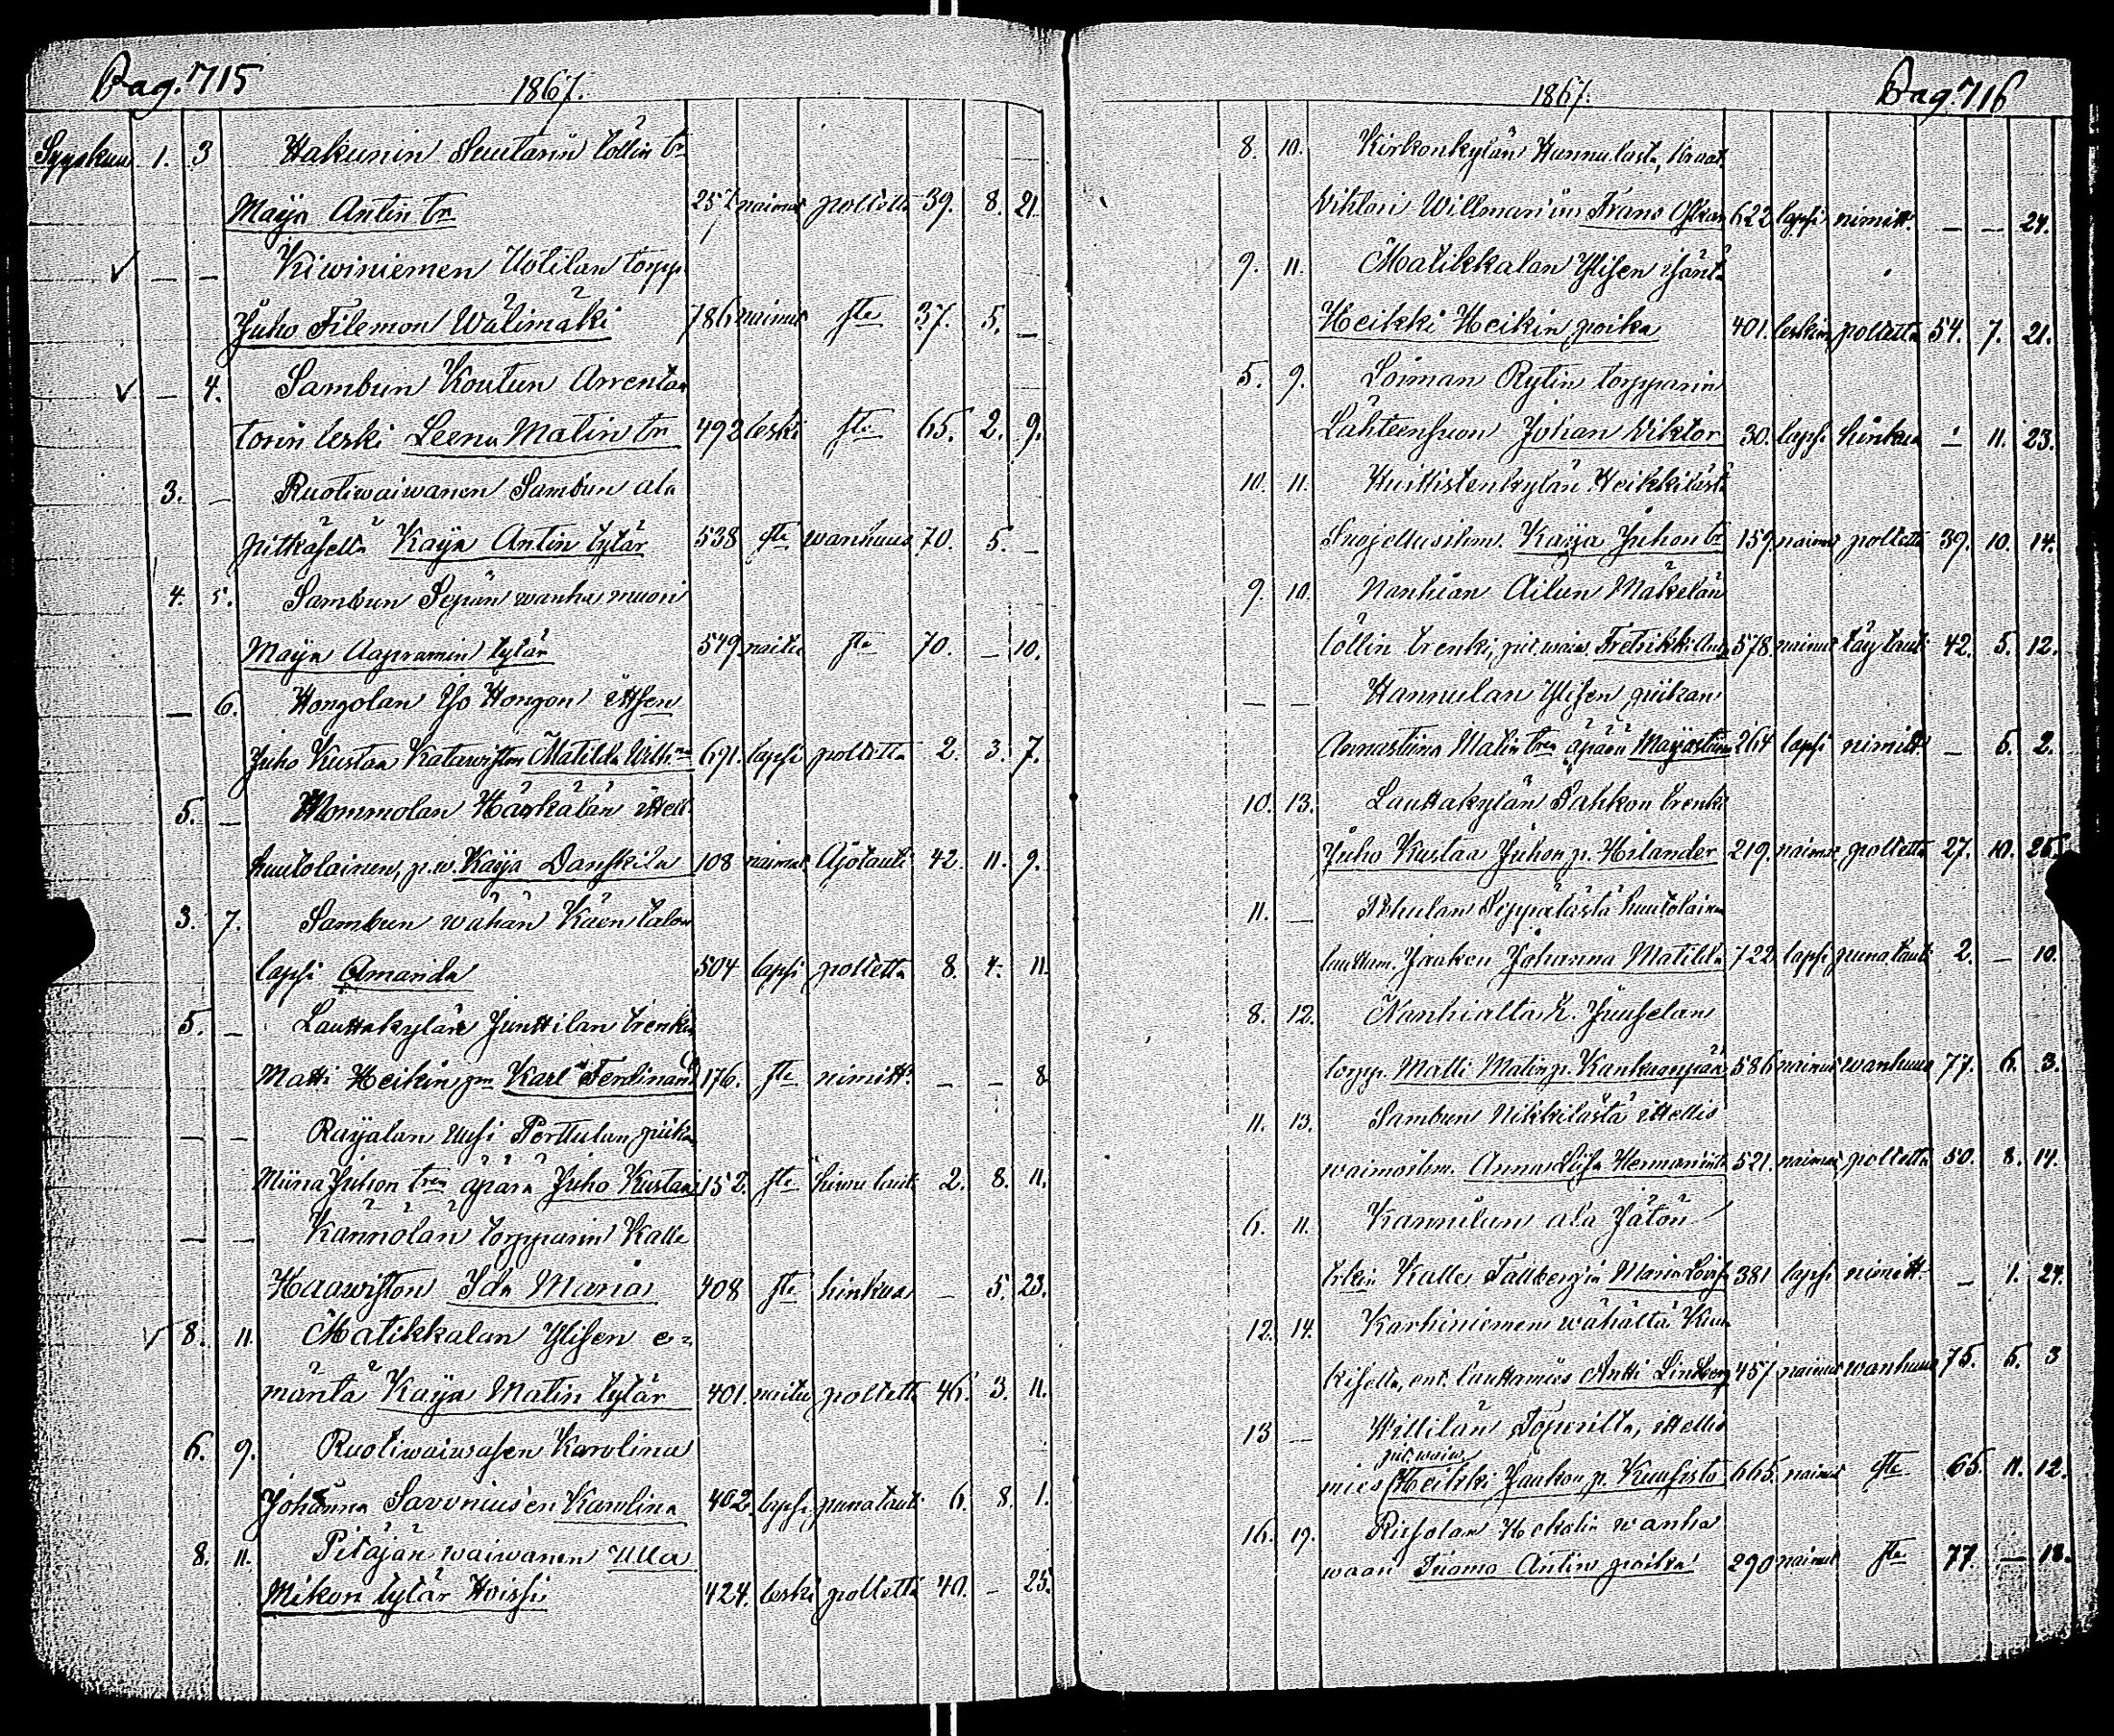 Pag. 715
1867.
Syyskuu 1. 3 Hakunin Suutarin töllin tr
Maija Antin tr 257 naimat poltetta 39. 8. 21
— — Kiwiniemen Uotilan torpp.
Juho Filemon Wälimäki 786 naimat ste 37. 5. —
— 4. Sambun Koutun Arrenta
torin leski Leena Matin tr 492 leski ste 65. 2. 9.
3. — Ruotiwaiwanen Sambun ala
pitkäseltä Kaija Antin tytär 538 ste wanhuus 70. 5. —
4. 5. Sambun Sepän wanha muori
Maija Aapramin tytär 549. naitu ste 70. — 10.
— 6. Hongolan Iso Hongon ittsen
Juho Kustaa Katawiston Matilda Wilh:na 691. lapsi poltetta 2. 3. 7.
5. — Mommolan Härkälän ittell.
huutolainen, p. w. Kaija Danskila 108 naimat. Ajotauti 42. 11. 9.
3. 7. Sambun wähän Käen talon
lapsi Amanda 504 lapsi poltetta 8. 4. 11.
5. — Lauttakylän Junttilan trenkin
Matti Heikin pn Karl Ferdinand 176. ste nimitt. — — 8
— — Raijalan Uusi Perttulan piika
Miina Juhon tren äpärä Juho Kustaa 152. ste hinku taut. 2. 8. 11.
— — Kännölän torpparin Kalle
Haawiston Ida Maria 408 ste hinkua — 5. 23.
8. 11. Matikkalan Ylisen e-
mäntä Kaija Matin tytär 401. naitu poltetta 46. 3. 11.
6. 9. Ruotiwaiwasen Karolina
Johanna Savoniusen Karolina 402. lapsi punataut. 6. 8. 1.
8. 11. Pitäjän waiwanen Ulla
Mikon tytär Hoissi 424. leski poltetta 40. — 25.
Pag. 716
1867.
8. 10. Kirkonkylän Hannulasta, Kraat.
Viktori Willmarin Frans Oskar 622 lapsi nimitt. — — 24.
9. 11. Matikkalan Ylisen isäntä
Heikki Heikin poika 401. leskim. poltetta 54. 7. 21.
5. 9. Loiman Rytin torpparin
Lähteensuon Johan Viktor 30. lapsi hinkua — 11. 23.
10. 11. Huittistenkylän Heikkilästä
Suojellusihm. Kaija Juhon tr 159. naimat poltetta 39. 10. 14.
9. 10. Nanhian Ailun Mäkelän
töllin trenki, pit. waiw. Fretrikki Ant. 578. naimat täytauti 42. 5. 12.
— — Hannulan Ylisen piikan
Annastiina Matin tren äpärä Maijastiina 264 lapsi nimitt. — 5. 2.
10. 13. Lauttakylän Pahkon trenki
Juho Kustaa Juhon p. Hilander 219. naimat poltetta 27. 10. 25.
11. — Pöhulan Seppälästä huutolainen
Jaakon Johanna Matilda 722 lapsi punataut. 2. — 10.
8. 12. Nanhialta K. Juuselan
torpp. Matti Matin p. Kankaanpää 586 naimat wanhuus 77. 6. 3.
11. 13. Sambun Nikkilästä ittellis
waimoihm. Anna Liisa Hermannintr 521. naimat poltetta 50. 8. 14.
6. 11. Kannulun ala Jätön
Kalle Tallbergin Maria Lovisa 381 lapsi nimitt. — 1. 24.
12. 14. Karhiniemen wähältä Kuu
kiselta, ent. lauttamies Antti Lindberg 457 naimat wanhuus 75. 6. 3
13 — Willilän Topurilta, ittellis
pit. waiw.
mies Heikki Jaakon p. Kuusisto 665. naimat ste 65. 11. 12.
16. 19. Rissolan Heckalin wanha
waari Tuomo Antin poika 290 naimat ste 77. — 18.